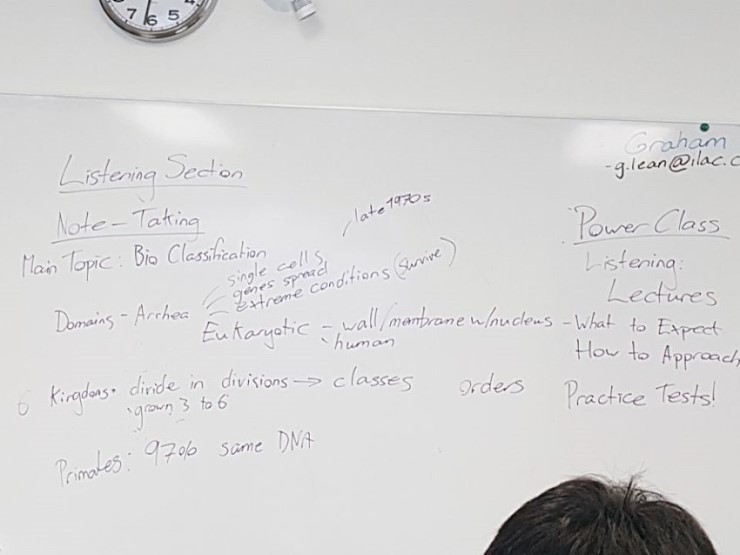 7 6 5
Graham
-g.lean@ilac.c
Listening Section
Note-Taking
late 1970s
Main Topic: Bio Classification
single cells
genes spread
extreme conditions (survive)
Domains - Archea
Eukaryotic - wall/membrane w/nucleus
human
6 Kingdoms. divide in divisions → classes orders
grown 3 to 6
Primates: 97% same DNA
Power Class
Listening:
Lectures
- What to Expect
How to Approach
Practice Tests!